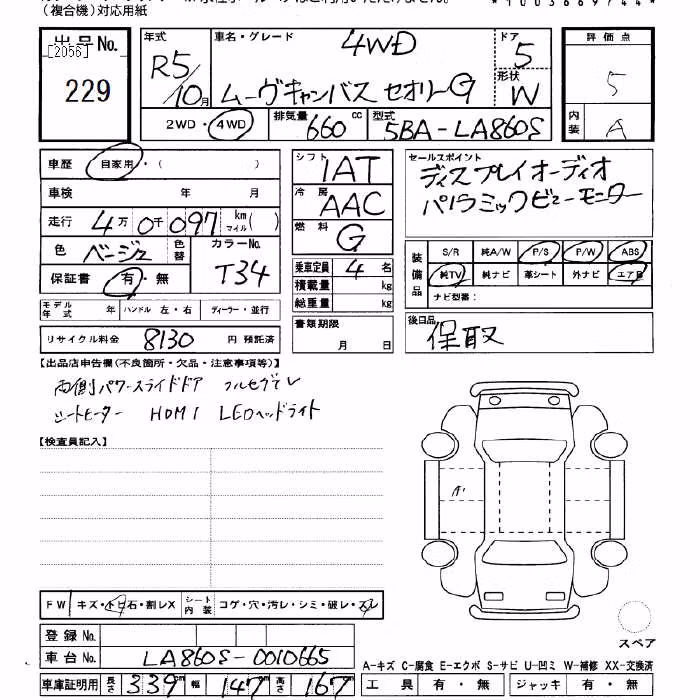 （複合機）対応用紙
*1003669744*
出品No.
[2056]
229
年式
R5/10月
車名・グレード
4WD
ムーヴキャンバス セオリーG
ドア
5
形状
W
2WD・4WD
排気量
660cc
型式
5BA-LA860S
評価点
5
内装
A
車歴 自家用・( )
車検 年 月
走行 4万0千097km マイル( )
色 ベージュ 色替
カラーNo.
T34
保証書 有・無
モデル年式 年 ハンドル 左・右 ディーラー・並行
リサイクル料金 8130 円 預託済
シフト IAT
冷房 AAC
燃料 G
乗車定員 4名
積載量 kg
総重量 kg
書類期限
月 日
セールスポイント
ディスプレイオーディオ
パノラミックビューモニター
装備品
S/R 純A/W P/S P/W ABS
純TV 純ナビ 革シート 外ナビ エアB
ナビ型番：
後日品
保取
【出品店申告欄(不良箇所・欠品・注意事項等)】
両側パワースライドドア フルセグTV
シートヒーター HDMI LEDヘッドライト
【検査員記入】
A1
FW キズ・トビ石・割レX
シート内装 コゲ・穴・汚レ・シミ・破レ・スレ
登録No.
車台No. LA860S-0010665
車庫証明用 長さ 339 幅 147 高さ 167
スペア
A-キズ C-腐食 E-エクボ S-サビ U-凹ミ W-補修 XX-交換済
工具 有・無 ジャッキ 有・無